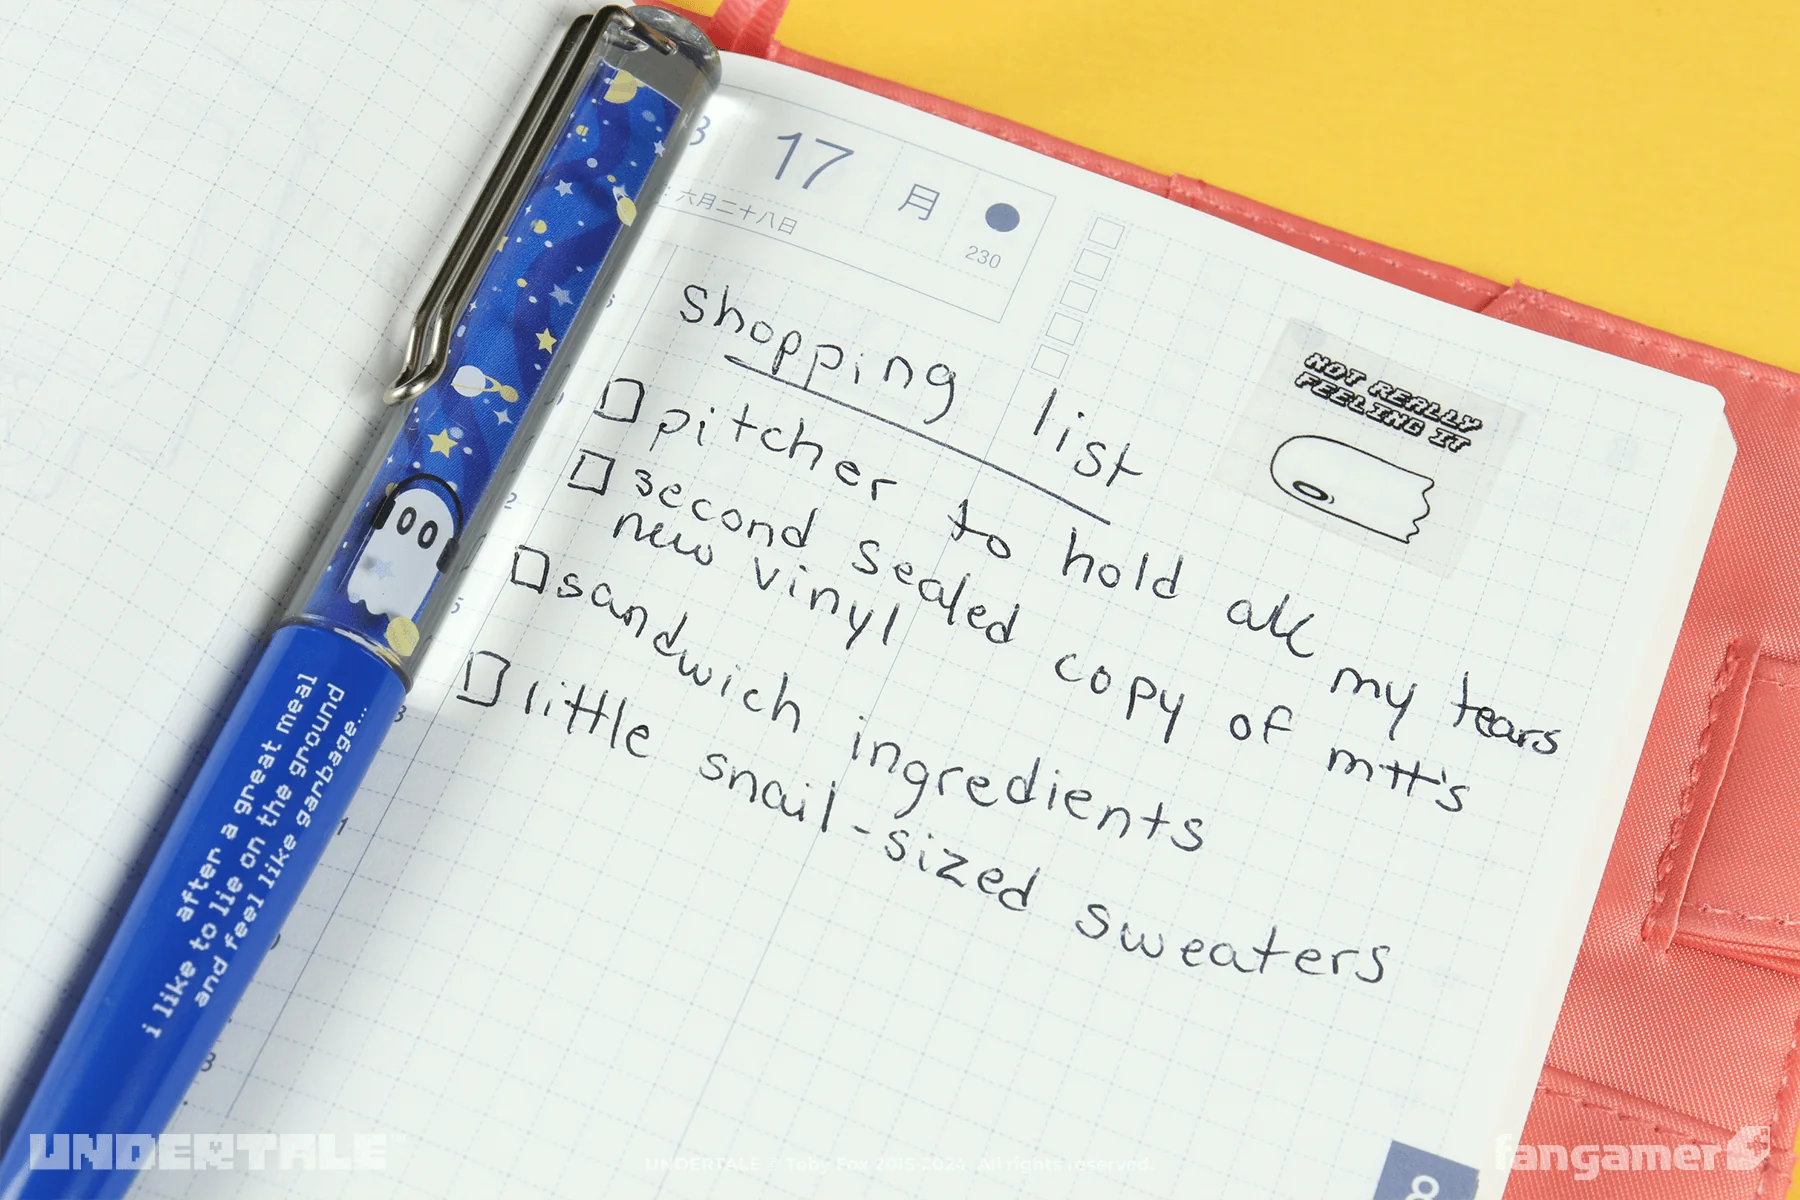 17 月
六月二十八日
230
shopping list
pitcher to hold all my tears
second sealed copy of mtt's
new vinyl
sandwich ingredients
little snail-sized sweaters
NOT REALLY
FEELING IT
after a great meal
i like to lie on the ground
and feel like garbage...
UNDERTALE™
UNDERTALE © Toby Fox 2015-2024. All rights reserved.
fangamer
8